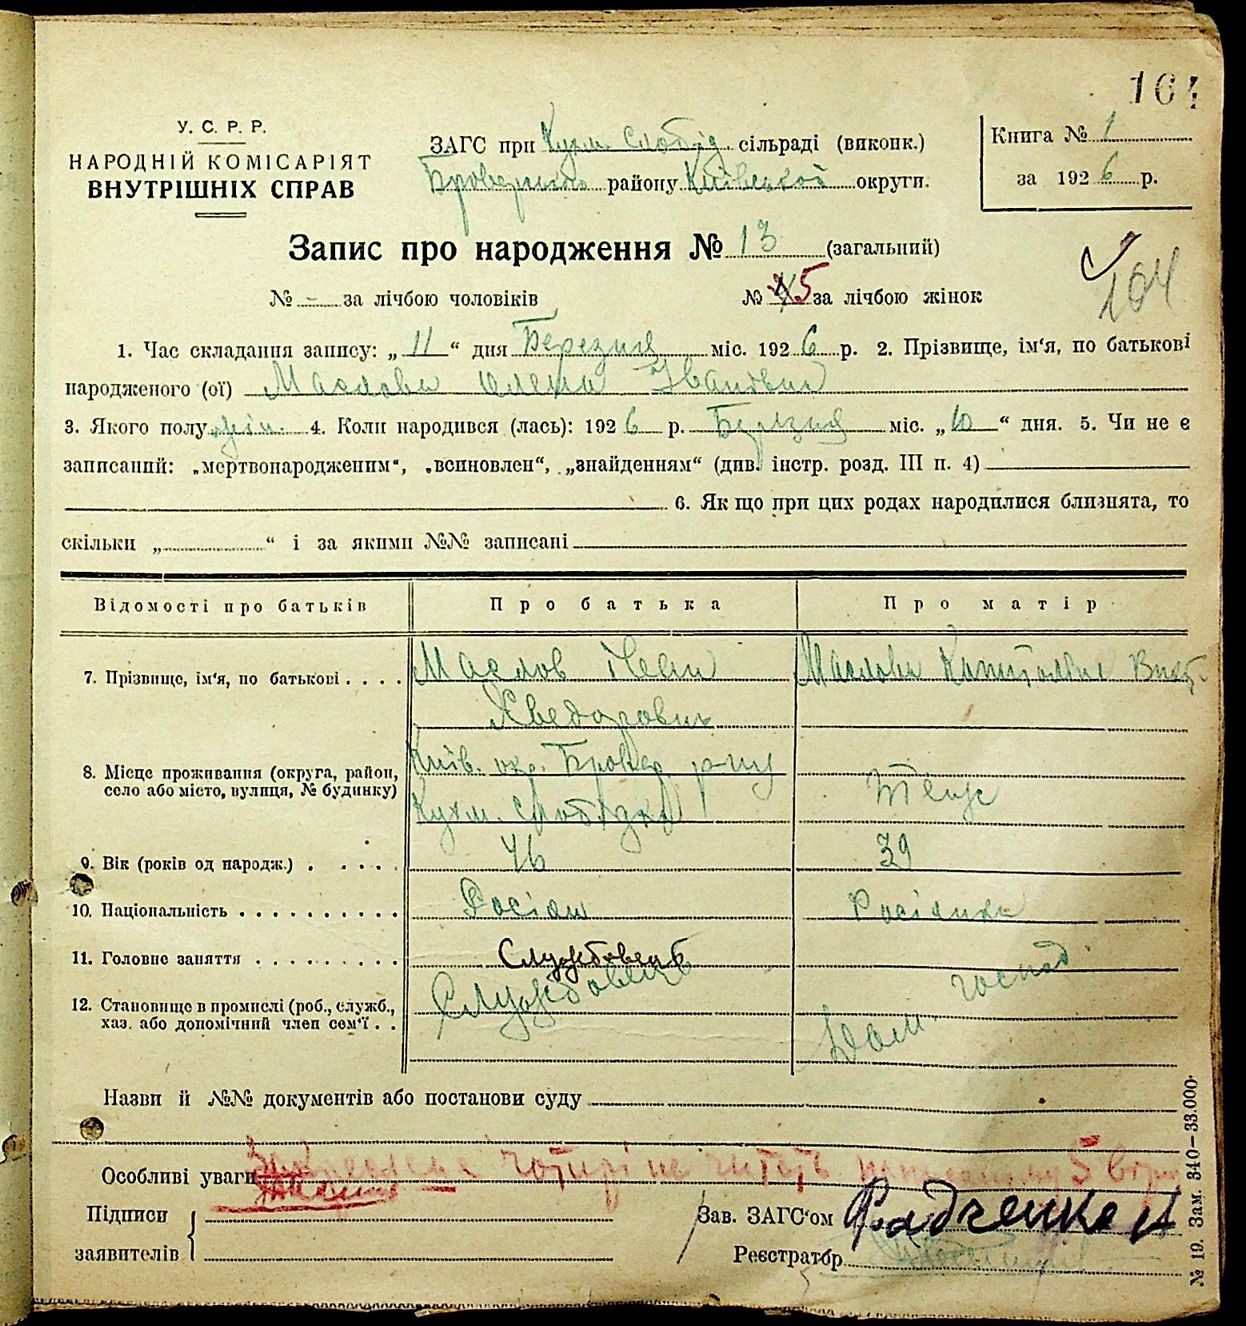 164
У. С. Р. Р.
НАРОДНІЙ КОМІСАРІЯТ
ВНУТРІШНІХ СПРАВ
ЗАГС при Кухм. Слобід сільраді (виконк.)
Броварськ. району Київської округи.
Книга № 1
за 1926 р.
Запис про народження № 13 (загальний)
№ - за лічбою чоловіків
№ 5 за лічбою жінок
104
1. Час складання запису: „11“ дня Березня міс. 1926 р. 2. Прізвище, ім'я, по батькові
народженого (ої) Маслова Олена Іванівна
3. Якого полу жін. 4. Коли народився (лась): 1926 р. Березня міс. „10“ дня. 5. Чи не є
записаний: „мертвонародженим“, „всиновлен“, „знайденням“ (див. інстр. розд. III п. 4)
6. Як що при цих родах народилися близнята, то
скільки „ “ і за якими №№ записані
Відомості про батьків Про батька Про матір
7. Прізвище, ім'я, по батькові . . . . Маслов Іван Маслова
Хведорович
8. Місце проживання (округа, район, село або місто, вулиця, № будинку) Київ. окр. Бровар. р-ну
Кухм. Слобідка
Теж
9. Вік (років од народж.) . . . . 46 39
10. Національність . . . . . . . . . . Росіян Росіянка
11. Головне заняття . . . . . . . . . Службовець
12. Становище в промислі (роб., служб., хаз. або допомічний член сем'ї . . Службовець Дом. господ
Назви й №№ документів або постанови суду
Особливі уваги чотирі не читать 5
Підписи
заявителів
Зав. ЗАГС'ом Радченко
Реєстратор
№ 19. Зам. 340—33.000.